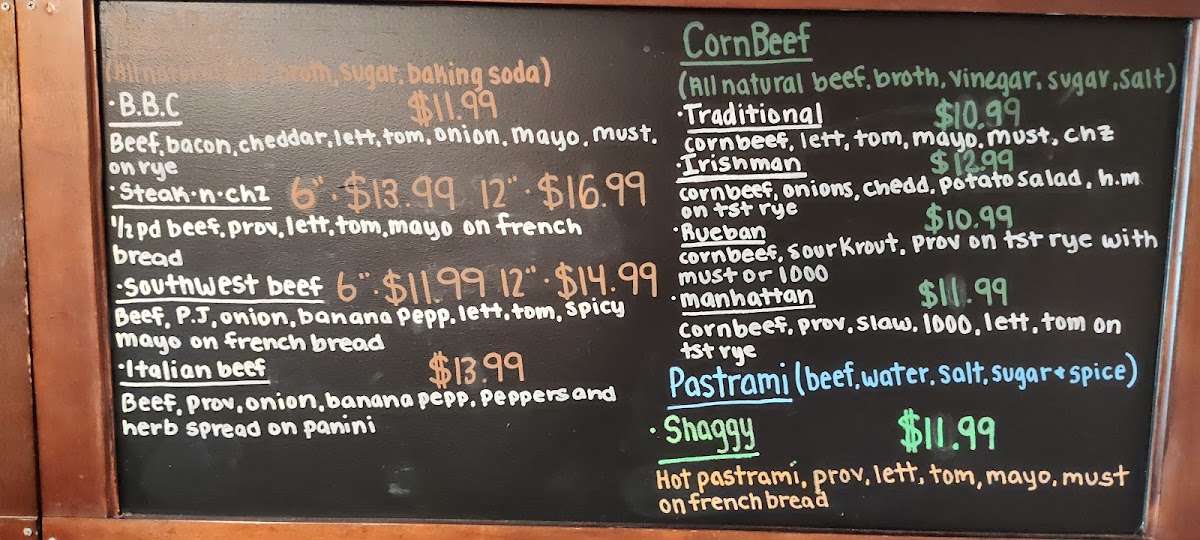 (All natural beef, broth, sugar, baking soda)
·B.B.C $11.99
Beef, bacon, cheddar, lett, tom, onion, mayo, must,
on rye
·Steak·n·chz 6"·$13.99 12"·$16.99
1/2 pd beef, prov, lett, tom, mayo on french
bread
·Southwest beef 6"·$11.99 12"·$14.99
Beef, P.J, onion, banana pepp, lett, tom, spicy
mayo on french bread
·Italian beef $13.99
Beef, prov, onion, banana pepp, peppers and
herb spread on panini
CornBeef
(All natural beef, broth, vinegar, sugar, salt)
·Traditional $10.99
cornbeef, lett, tom, mayo, must, chz
·Irishman $12.99
cornbeef, onions, chedd, potato salad, h.m
on tst rye
·Rueban $10.99
cornbeef, sourkrout, prov on tst rye with
must or 1000
·manhattan $11.99
cornbeef, prov, slaw, 1000, lett, tom on
tst rye
Pastrami (beef, water, salt, sugar + spice)
·Shaggy $11.99
Hot pastrami, prov, lett, tom, mayo, must
on french bread